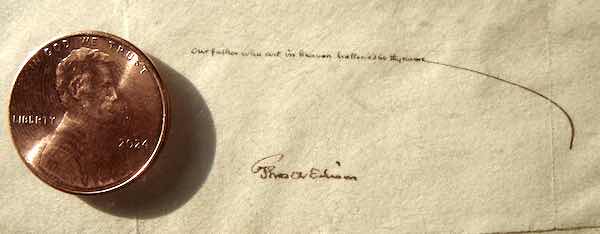 IN GOD WE TRUST
LIBERTY
2024
Our father who art in heaven hallowed be thy name
Thos A Edison